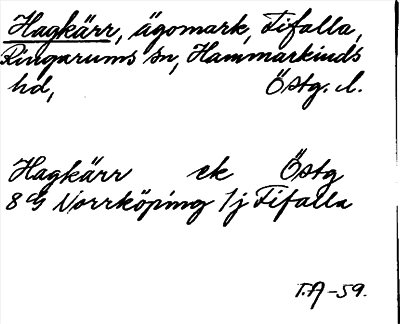 Hagkärr, ägomark, Fifalla,
Ringarums sn, Hammarkinds
hd, Östg. l.
Hagkärr ek Östg
8 G Norrköping 1j Fifalla
T.A -59.